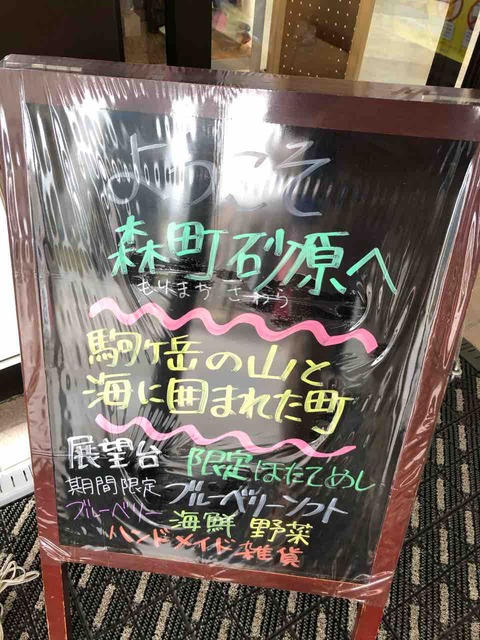 ようこそ
森町砂原へ
もりまち さわら
駒ヶ岳の山と
海に囲まれた町
展望台 限定ほたてめし
期間限定 ブルーベリーソフト
ブルーベリー 海鮮 野菜
ハンドメイド雑貨